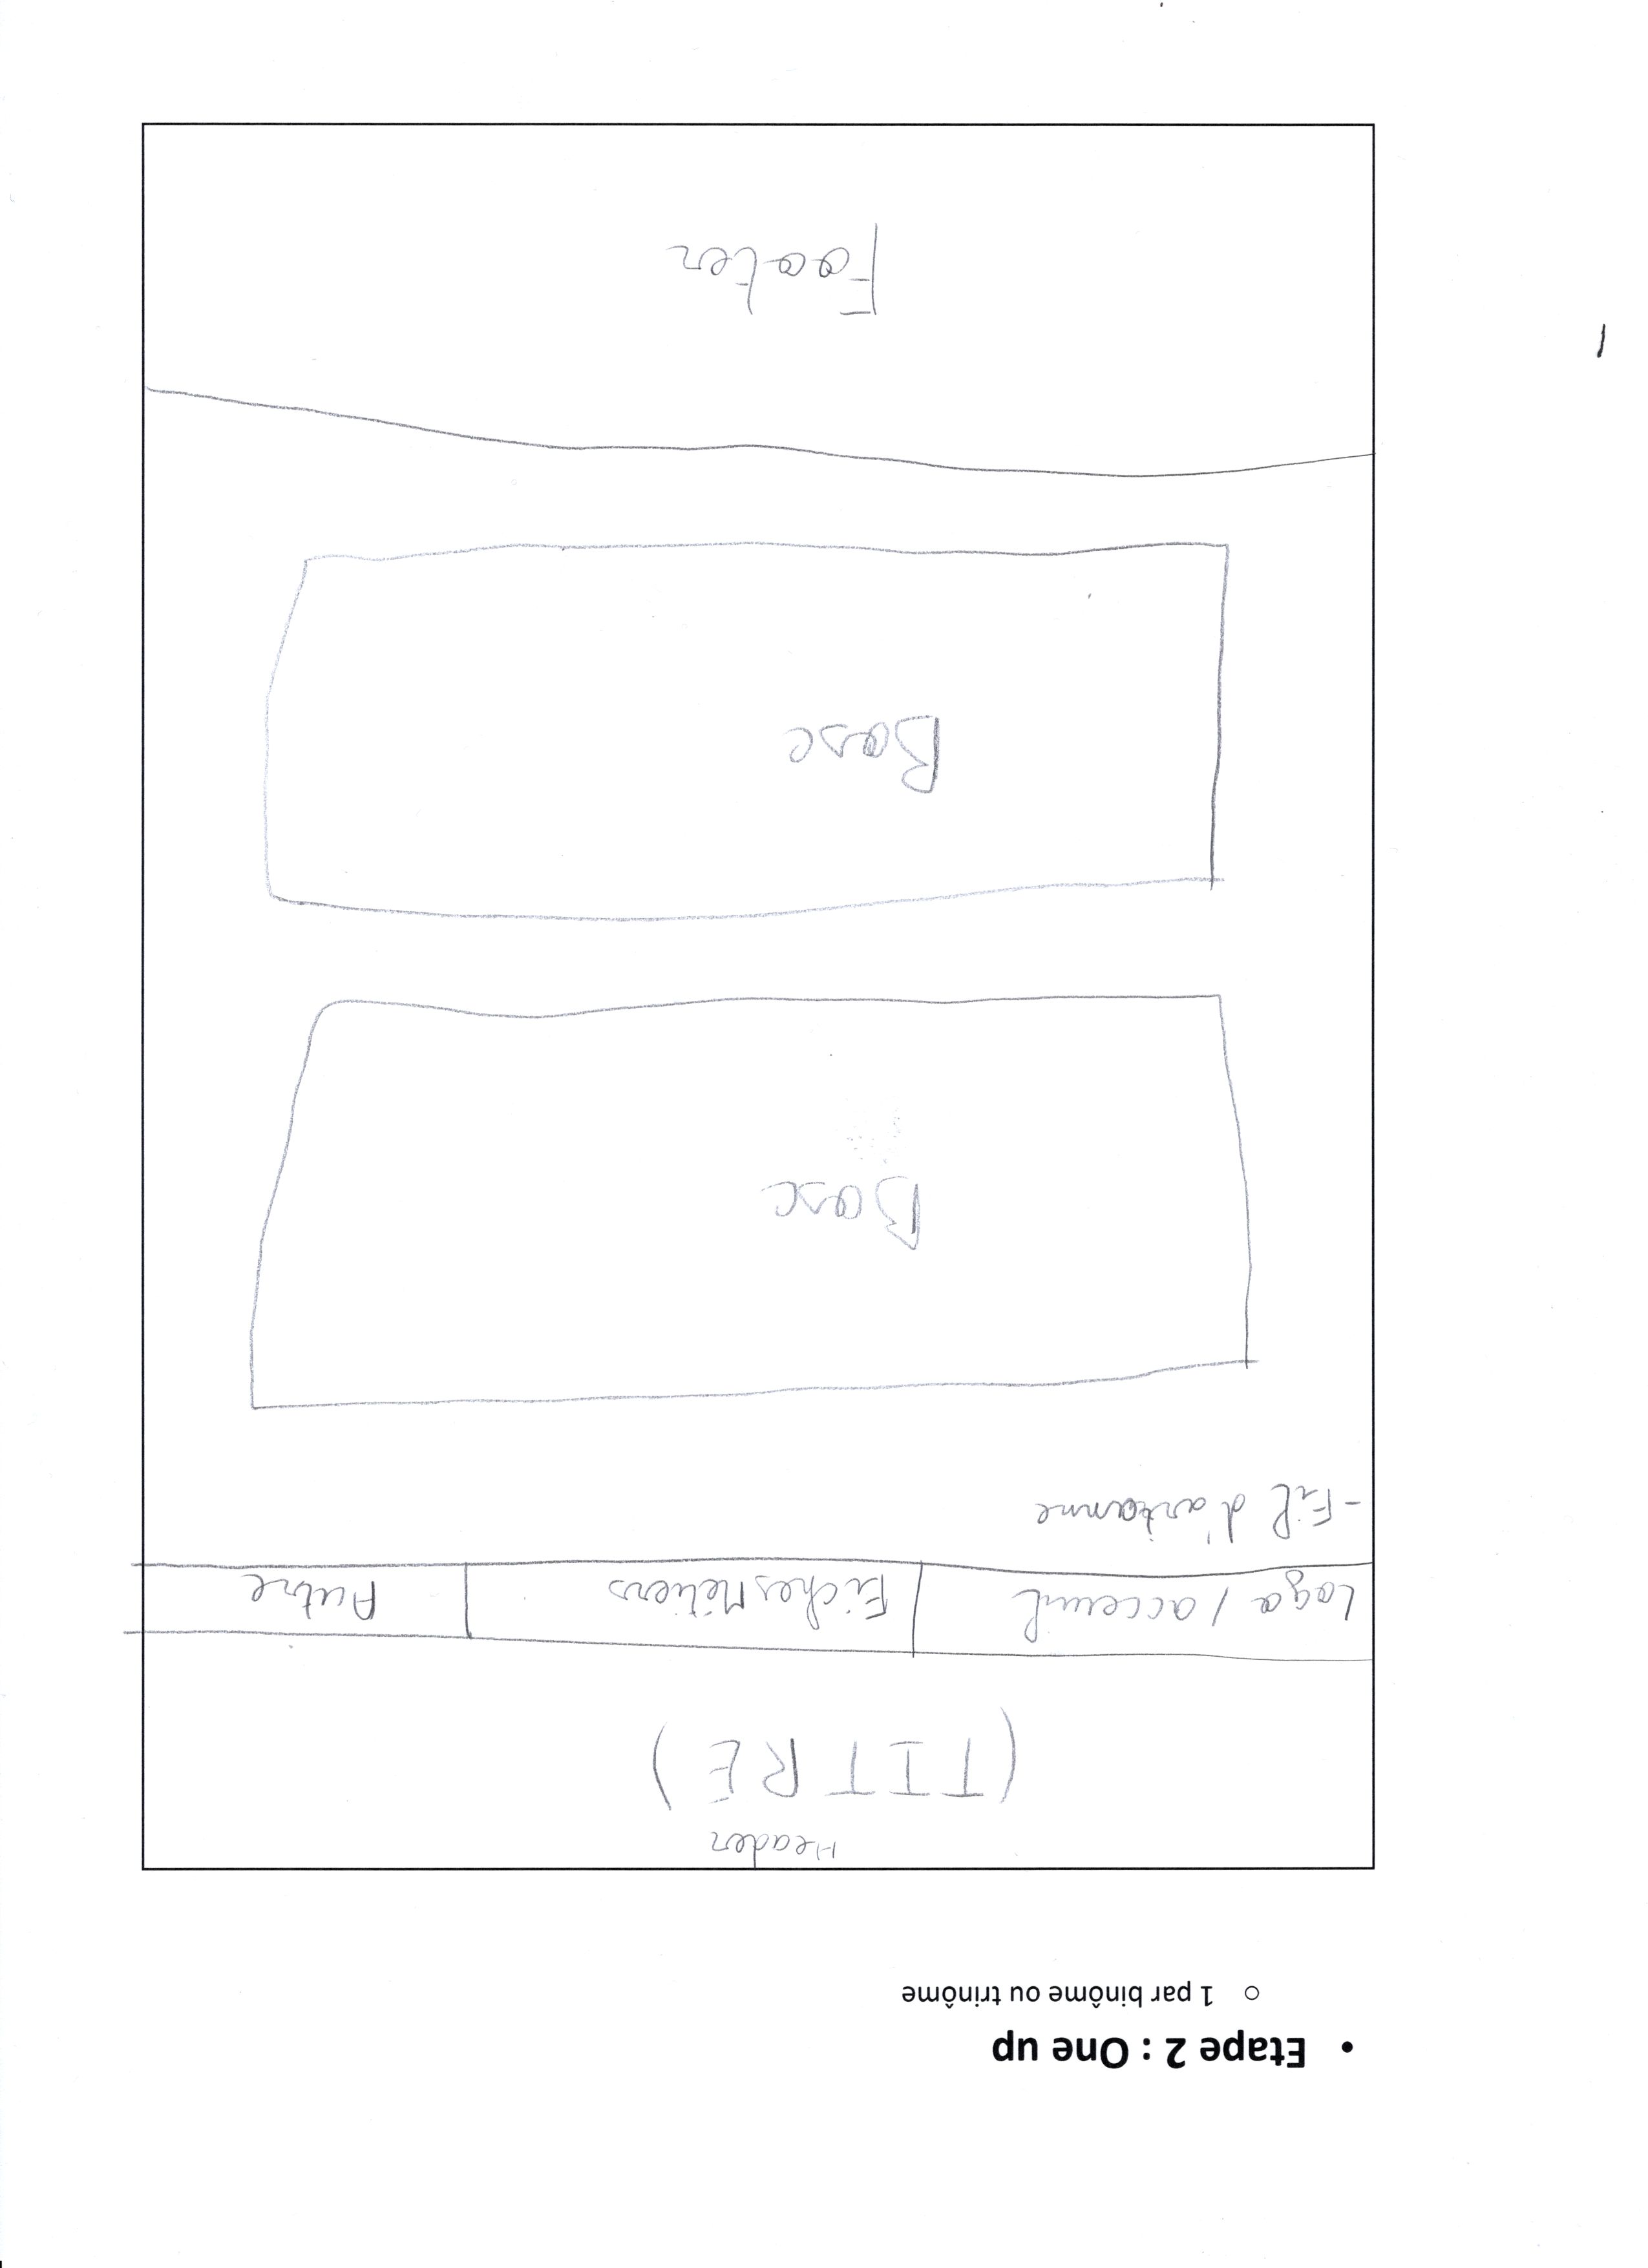 • Etape 2 : One up
o 1 par binôme ou trinôme
Header
(TITRE)
Logo / acceuil
Fiches Métiers
Autre
- Fil d'arianne
Base
Base
Footer